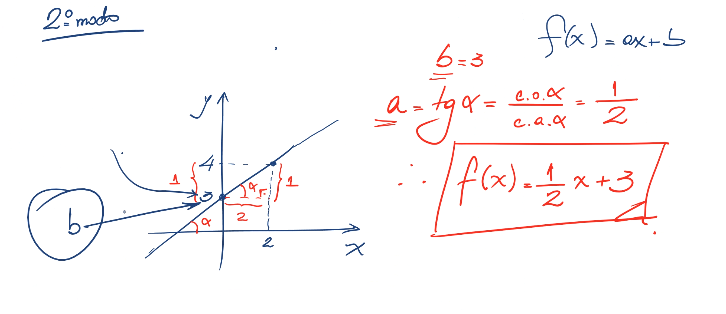 2º modo
f(x) = ax + b
b = 3
a = tg α = c.o.α / c.a.α = 1/2
∴ f(x) = 1/2 x + 3
y
4
1
3
α
1
2
b
α
2
x